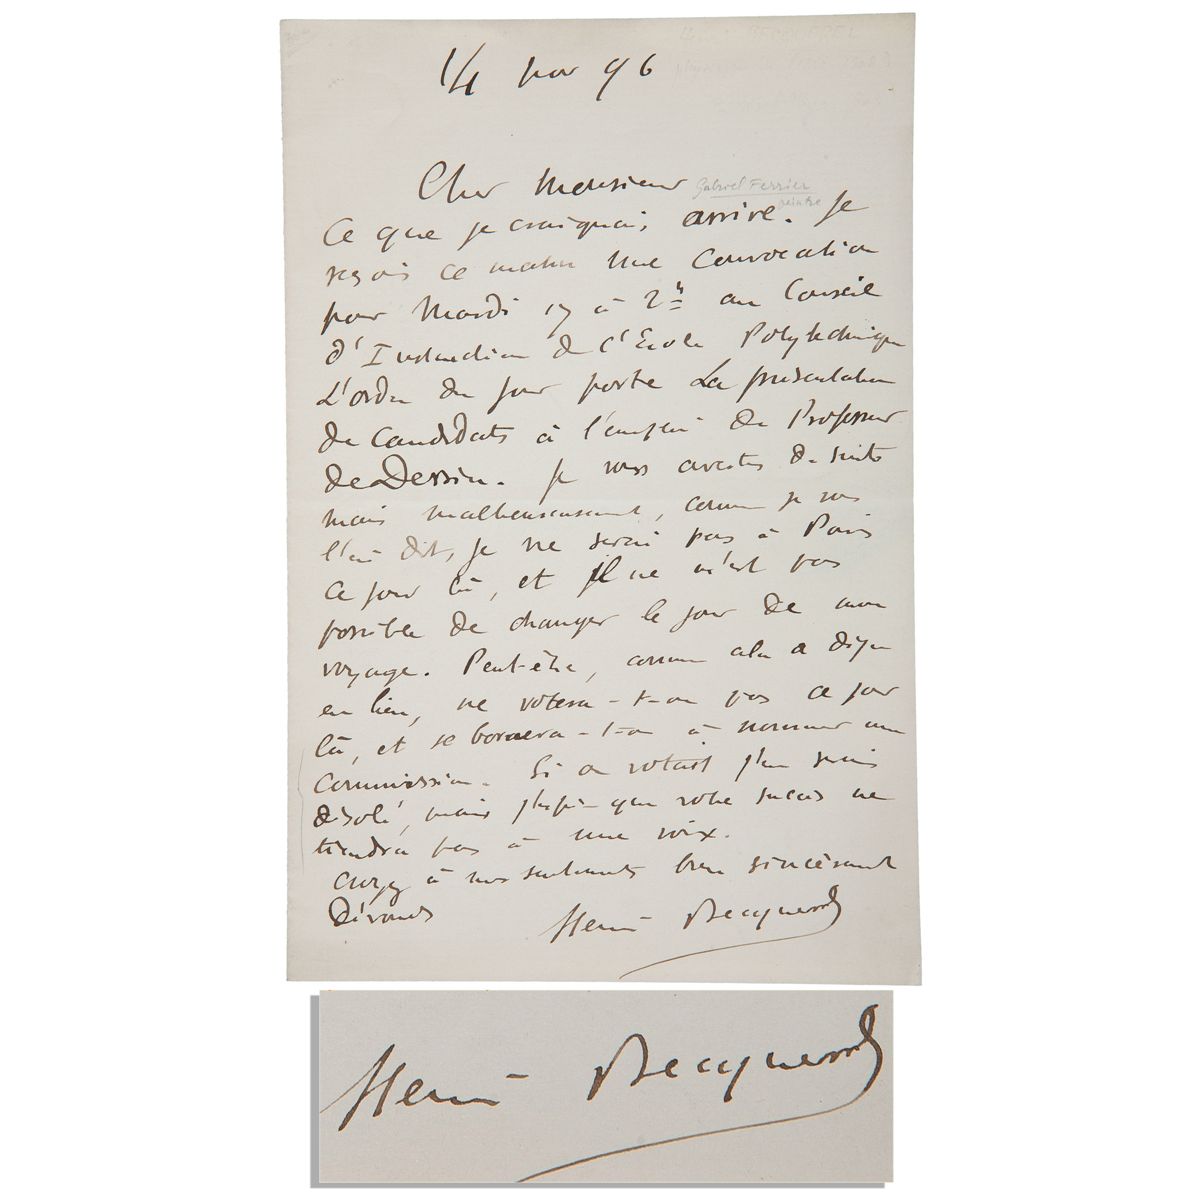 14 nov 96
Cher Monsieur Gabriel Ferrier
peintre
Ce que je craignais arrive. Je
reçois ce matin une convocation
pour Mardi 17 à 2h au Conseil
d'Instruction de l'Ecole Polytechnique
L'ordre du jour porte La présentation
de candidats à l'emploi de Professeur
de Dessin. Je vous avertis de suite
mais malheureusement, comme je vous
l'ai dit, je ne serai pas à Paris
ce jour là, et il ne m'est pas
possible de changer le jour de mon
voyage. Peut-être, comme cela a déjà
eu lieu, ne votera-t-on pas ce jour
là, et se bornera-t-on à nommer une
Commission. Si on votait j'en serais
désolé, mais j'espère que votre succès ne
tiendra pas à une voix.
Croyez à mes sentiments bien sincèrement
dévoués Henri Becquerel
Henri Becquerel